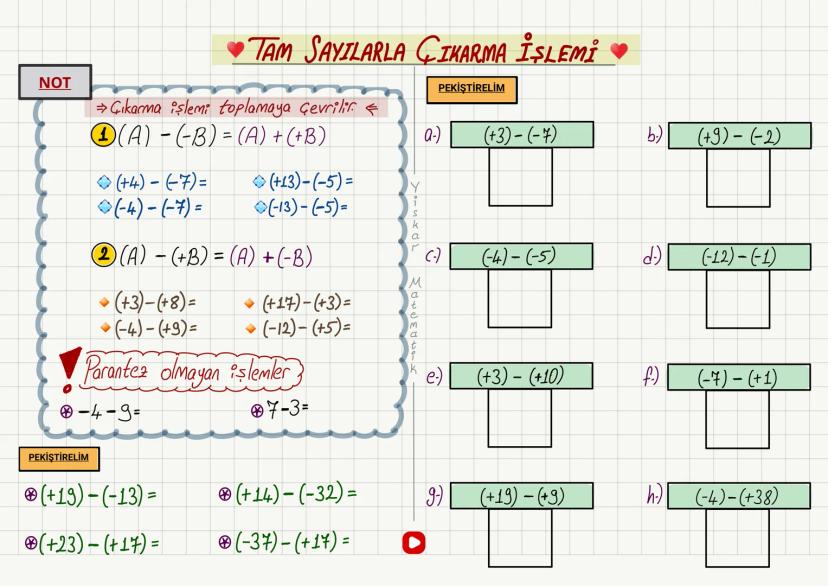 TAM SAYILARLA ÇIKARMA İŞLEMİ
NOT
⇒ Çıkarma işlemi toplamaya çevrilir. ⇐
1 (A) - (-B) = (A) + (+B)
(+4) - (-7) = (+13) - (-5) =
(-4) - (-7) = (-13) - (-5) =
2 (A) - (+B) = (A) + (-B)
(+3) - (+8) = (+17) - (+3) =
(-4) - (+9) = (-12) - (+5) =
! Parantez olmayan işlemler
-4 - 9 = 7 - 3 =
PEKİŞTİRELİM
(+19) - (-13) = (+14) - (-32) =
(+23) - (+17) = (-37) - (+17) =
Yiskar Matematik
PEKİŞTİRELİM
a-) (+3) - (-7) b-) (+9) - (-2)
c-) (-4) - (-5) d-) (-12) - (-1)
e-) (+3) - (+10) f-) (-7) - (+1)
g-) (+19) - (+9) h-) (-4) - (+38)